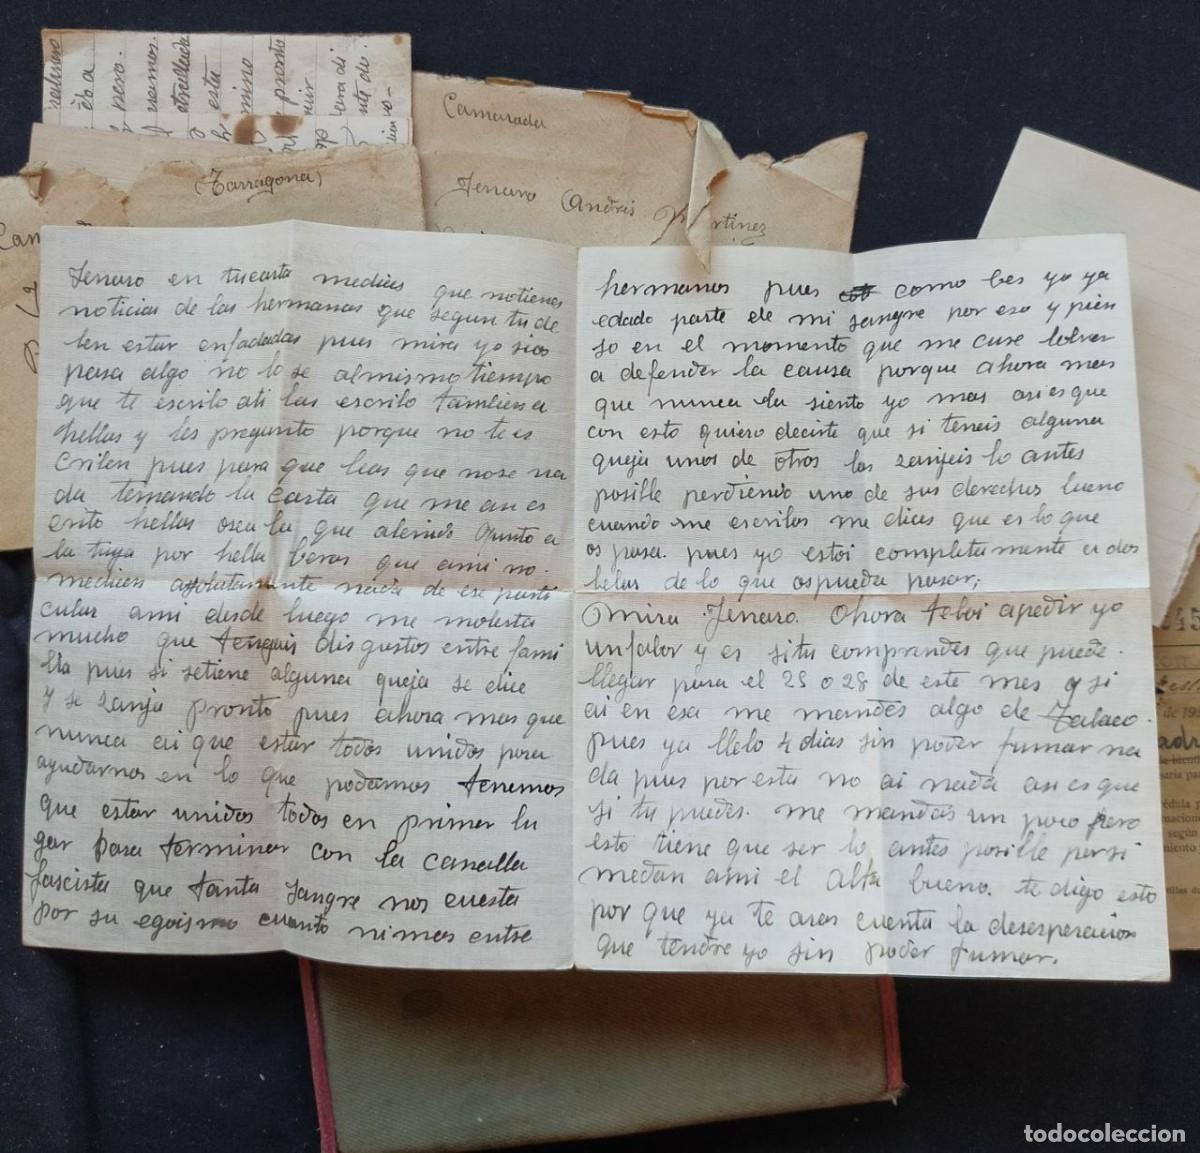 Camarada
(Tarragona)
Jenaro Andrés Martinez
Jenaro en tucarta medices que notienes
noticias de las hermanas que segun tu de
ben estar enfadadas pues mira yo sios
pasa algo no lo se almismo tiempo
que te escribo ati las escribo tambien a
hellas y les pregunto porque no tees
criben pues para que beas que nose na
da temando la carta que me an es
crito hellas osea la que alenido Junto a
la tuya por hella beras que ami no.
medicen assolutamente nada de ese parti
cular ami desde luego me molesta
mucho que tengais disgustos entre fami
lia pues si setiene alguna queja se dice
y se zanja pronto pues ahora mas que
nunca ai que estar todos unidos para
ayudarnos en lo que podamos tenemos
que estar unidos todos en primer lu
gar para terminar con la canalla
fascista que tanta sangre nos cuesta
por su egoismo cuanto nimos entre
hermanos pues como bes yo ya
edado parte de mi sangre por eso y pien
so en el momento que me cure bolver
a defender la causa porque ahora mas
que nunca la siento yo mas asi es que
con esto quiero decirte que si teneis alguna
queja unos de otros las zanjeis lo antes
posible perdiendo uno de sus derechos bueno
cuando me escribas me dices que es lo que
os pasa. pues yo estoi completamente ados
belas de lo que ospueda pasar;
Mira Jenaro. Ahora teboi apedir yo
unfabor y es situ comprendes que puede.
llegar para el 25 o 28 de este mes y si
ai en esa me mandes algo de Tabaco.
pues ya llebo 4 dias sin poder fumar na
da pues por esta no ai nada asi es que
si tu puedes. me mandas un poco pero
esto tiene que ser lo antes posible por si
medan ami el alta bueno. te digo esto
por que ya te aras cuenta la desesperacion
que tendre yo sin poder fumar.
todocoleccion